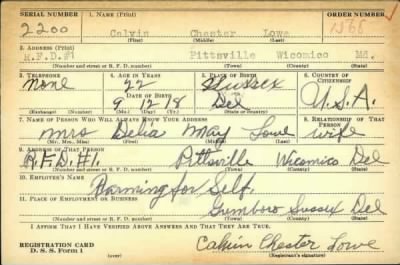 SERIAL NUMBER 1. NAME (Print) ORDER NUMBER
2200 Calvin Chester Lowe 1366
(First) (Middle) (Last)
2. ADDRESS (Print)
R.F.D.#1 Pittsville Wicomico Md.
(Number and street or R. F. D. number) (Town) (County) (State)
3. TELEPHONE 4. AGE IN YEARS 5. PLACE OF BIRTH 6. COUNTRY OF CITIZENSHIP
None 22 Sussex
DATE OF BIRTH
9 12 18 Del U.S.A.
(Exchange) (Number) (Mo.) (Day) (Yr.) (State or country)
7. NAME OF PERSON WHO WILL ALWAYS KNOW YOUR ADDRESS 8. RELATIONSHIP OF THAT PERSON
Mrs Delia May Lowe wife
(Mr., Mrs., Miss) (First) (Middle) (Last)
9. ADDRESS OF THAT PERSON
R.F.D.#1. Pittsville Wicomico Del
(Number and street or R. F. D. number) (Town) (County) (State)
10. EMPLOYER'S NAME
Farming for Self.
11. PLACE OF EMPLOYMENT OR BUSINESS
Gumboro Sussex Del
(Number and street or R. F. D. number) (Town) (County) (State)
I AFFIRM THAT I HAVE VERIFIED ABOVE ANSWERS AND THAT THEY ARE TRUE.
REGISTRATION CARD
D. S. S. Form 1 Calvin Chester Lowe
(Registrant's signature)